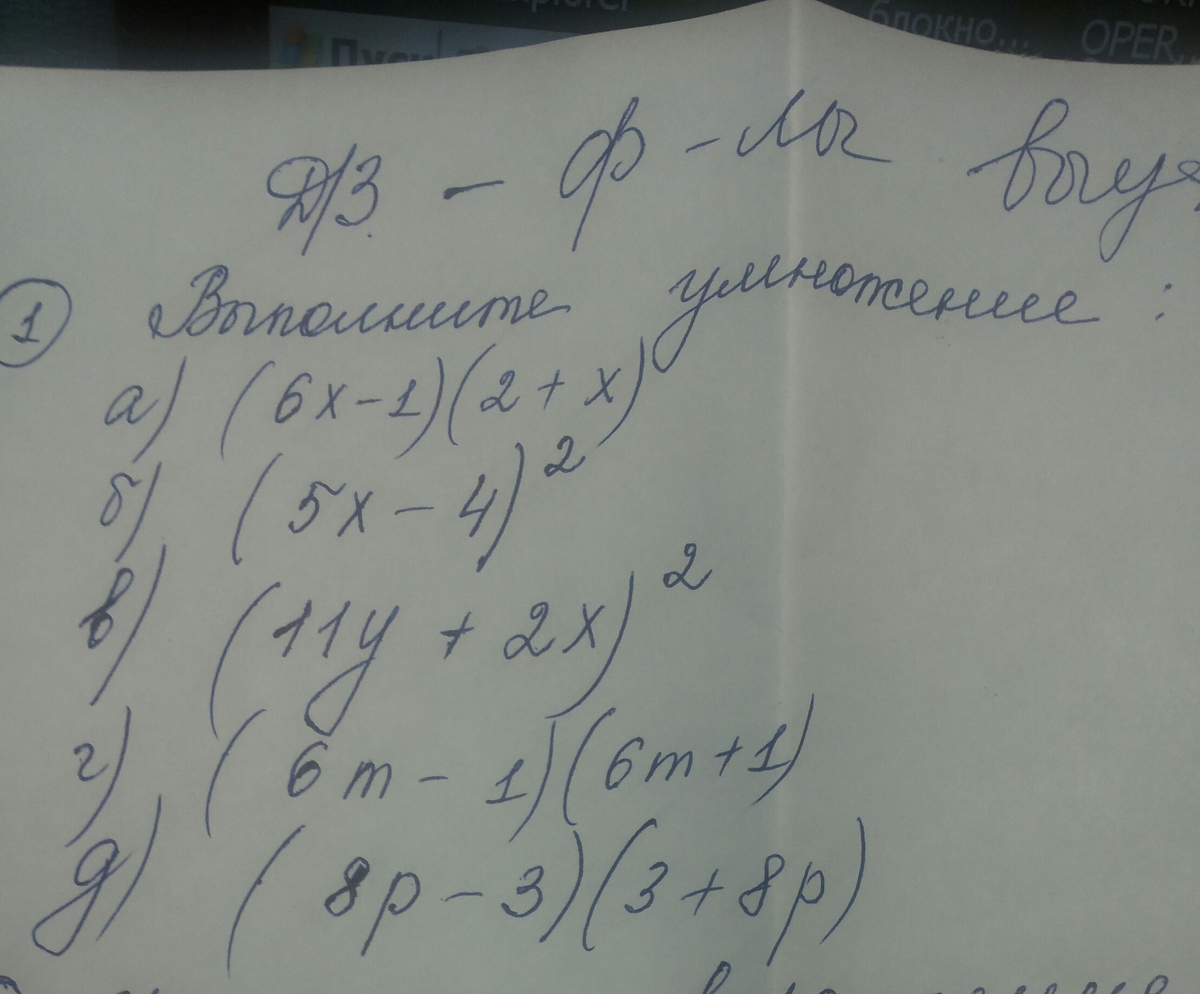 Пуск
блокно...
OPER...
ДЗ - ф-лы выуч
① Выполните умножение:
а) (6x-1)(2+x)
б) (5x-4)²
в) (11y+2x)²
г) (6m-1)(6m+1)
д) (8p-3)(3+8p)